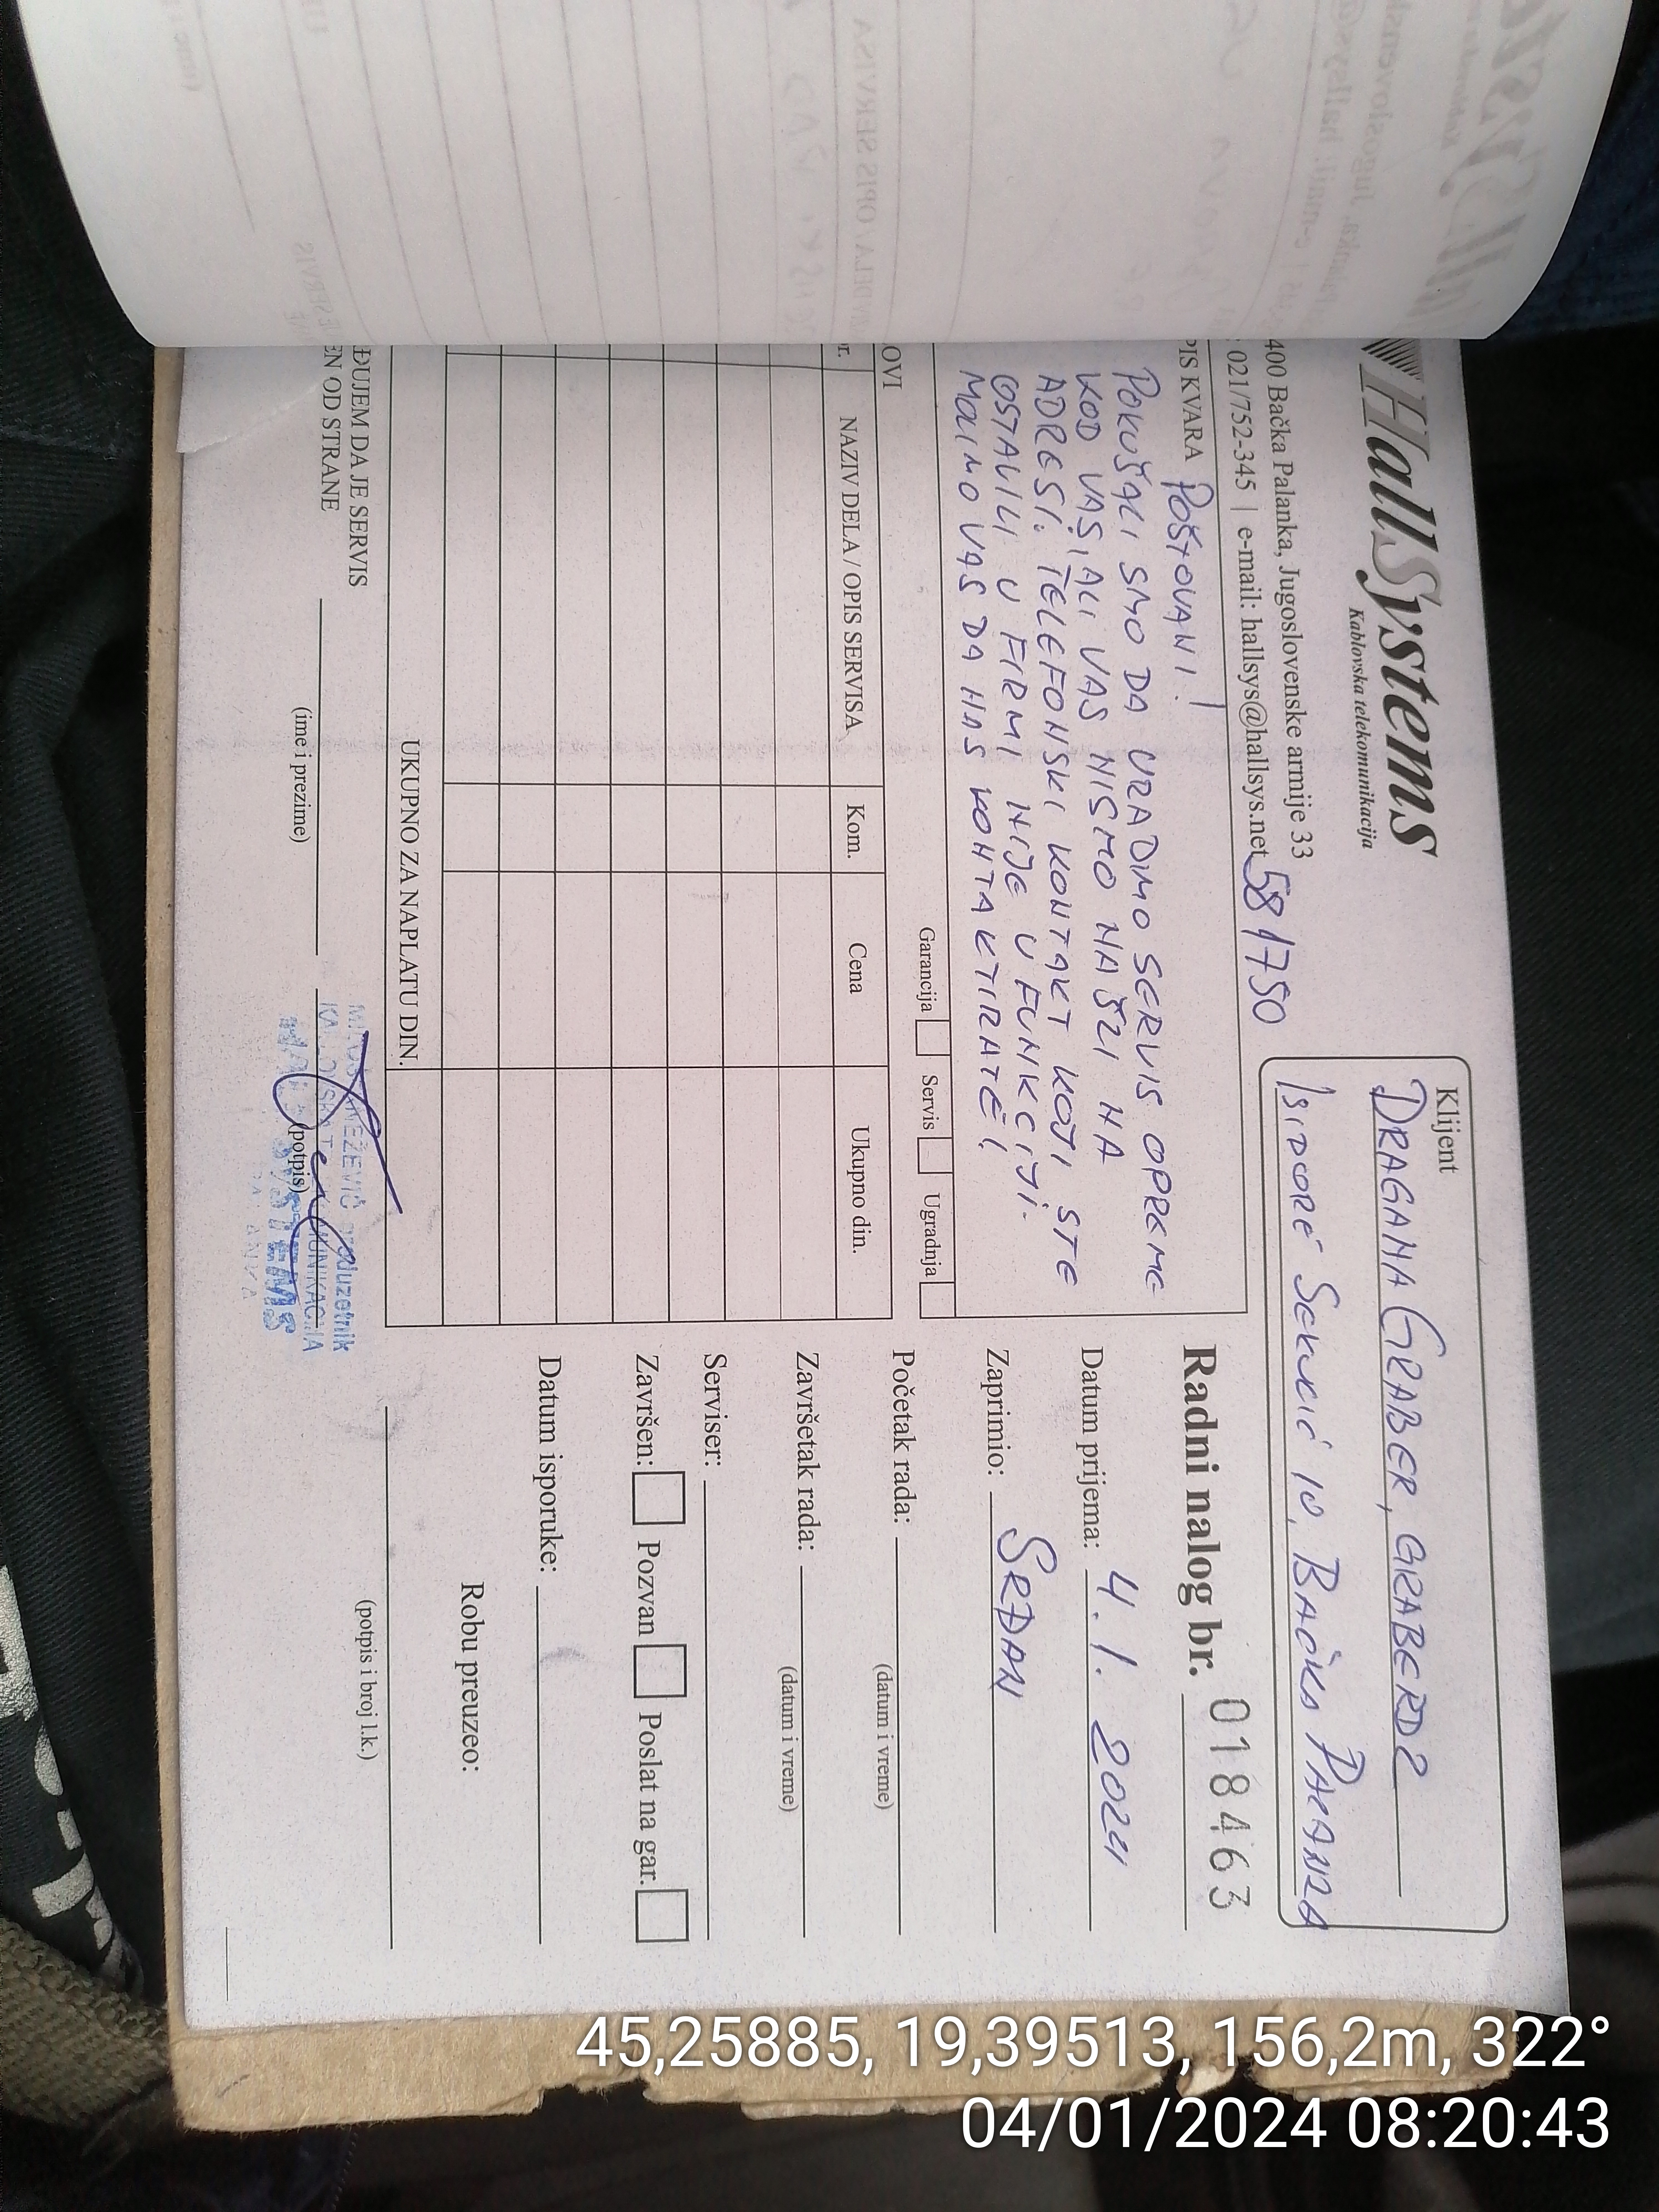 HallSystems
Kablovska telekomunikacija
400 Bačka Palanka, Jugoslovenske armije 33
021/752-345 | e-mail: hallsys@hallsys.net
581750
Klijent
DRAGANA GRABER, GRABERDŽ
ISIDORE SEKULIĆ 10, BAČKA PALANKA
PIS KVARA POŠTOVANI!
POKUŠALI SMO DA URADIMO SERVIS OPREME
KOD VAS, ALI VAS NISMO NAŠLI NA
ADRESI. TELEFONSKI KONTAKT KOJI STE
OSTAVILI U FIRMI NIJE U FUNKCIJI.
MOLIMO VAS DA NAS KONTAKTIRATE!
Garancija Servis Ugradnja
OVI
r. NAZIV DELA / OPIS SERVISA Kom. Cena Ukupno din.
UKUPNO ZA NAPLATU DIN.
ĐUJEM DA JE SERVIS
EN OD STRANE
(ime i prezime)
(potpis)
KNEŽEVIĆ preduzetnik
TELEKOMUNIKACIJA
SYSTEMS
Radni nalog br. 018463
Datum prijema: 4. 1. 2024
Zaprimio: SRĐAN
Početak rada:
(datum i vreme)
Završetak rada:
(datum i vreme)
Serviser:
Završen: Pozvan Poslat na gar.
Datum isporuke:
Robu preuzeo:
(potpis i broj l.k.)
45,25885, 19,39513, 156,2m, 322°
04/01/2024 08:20:43